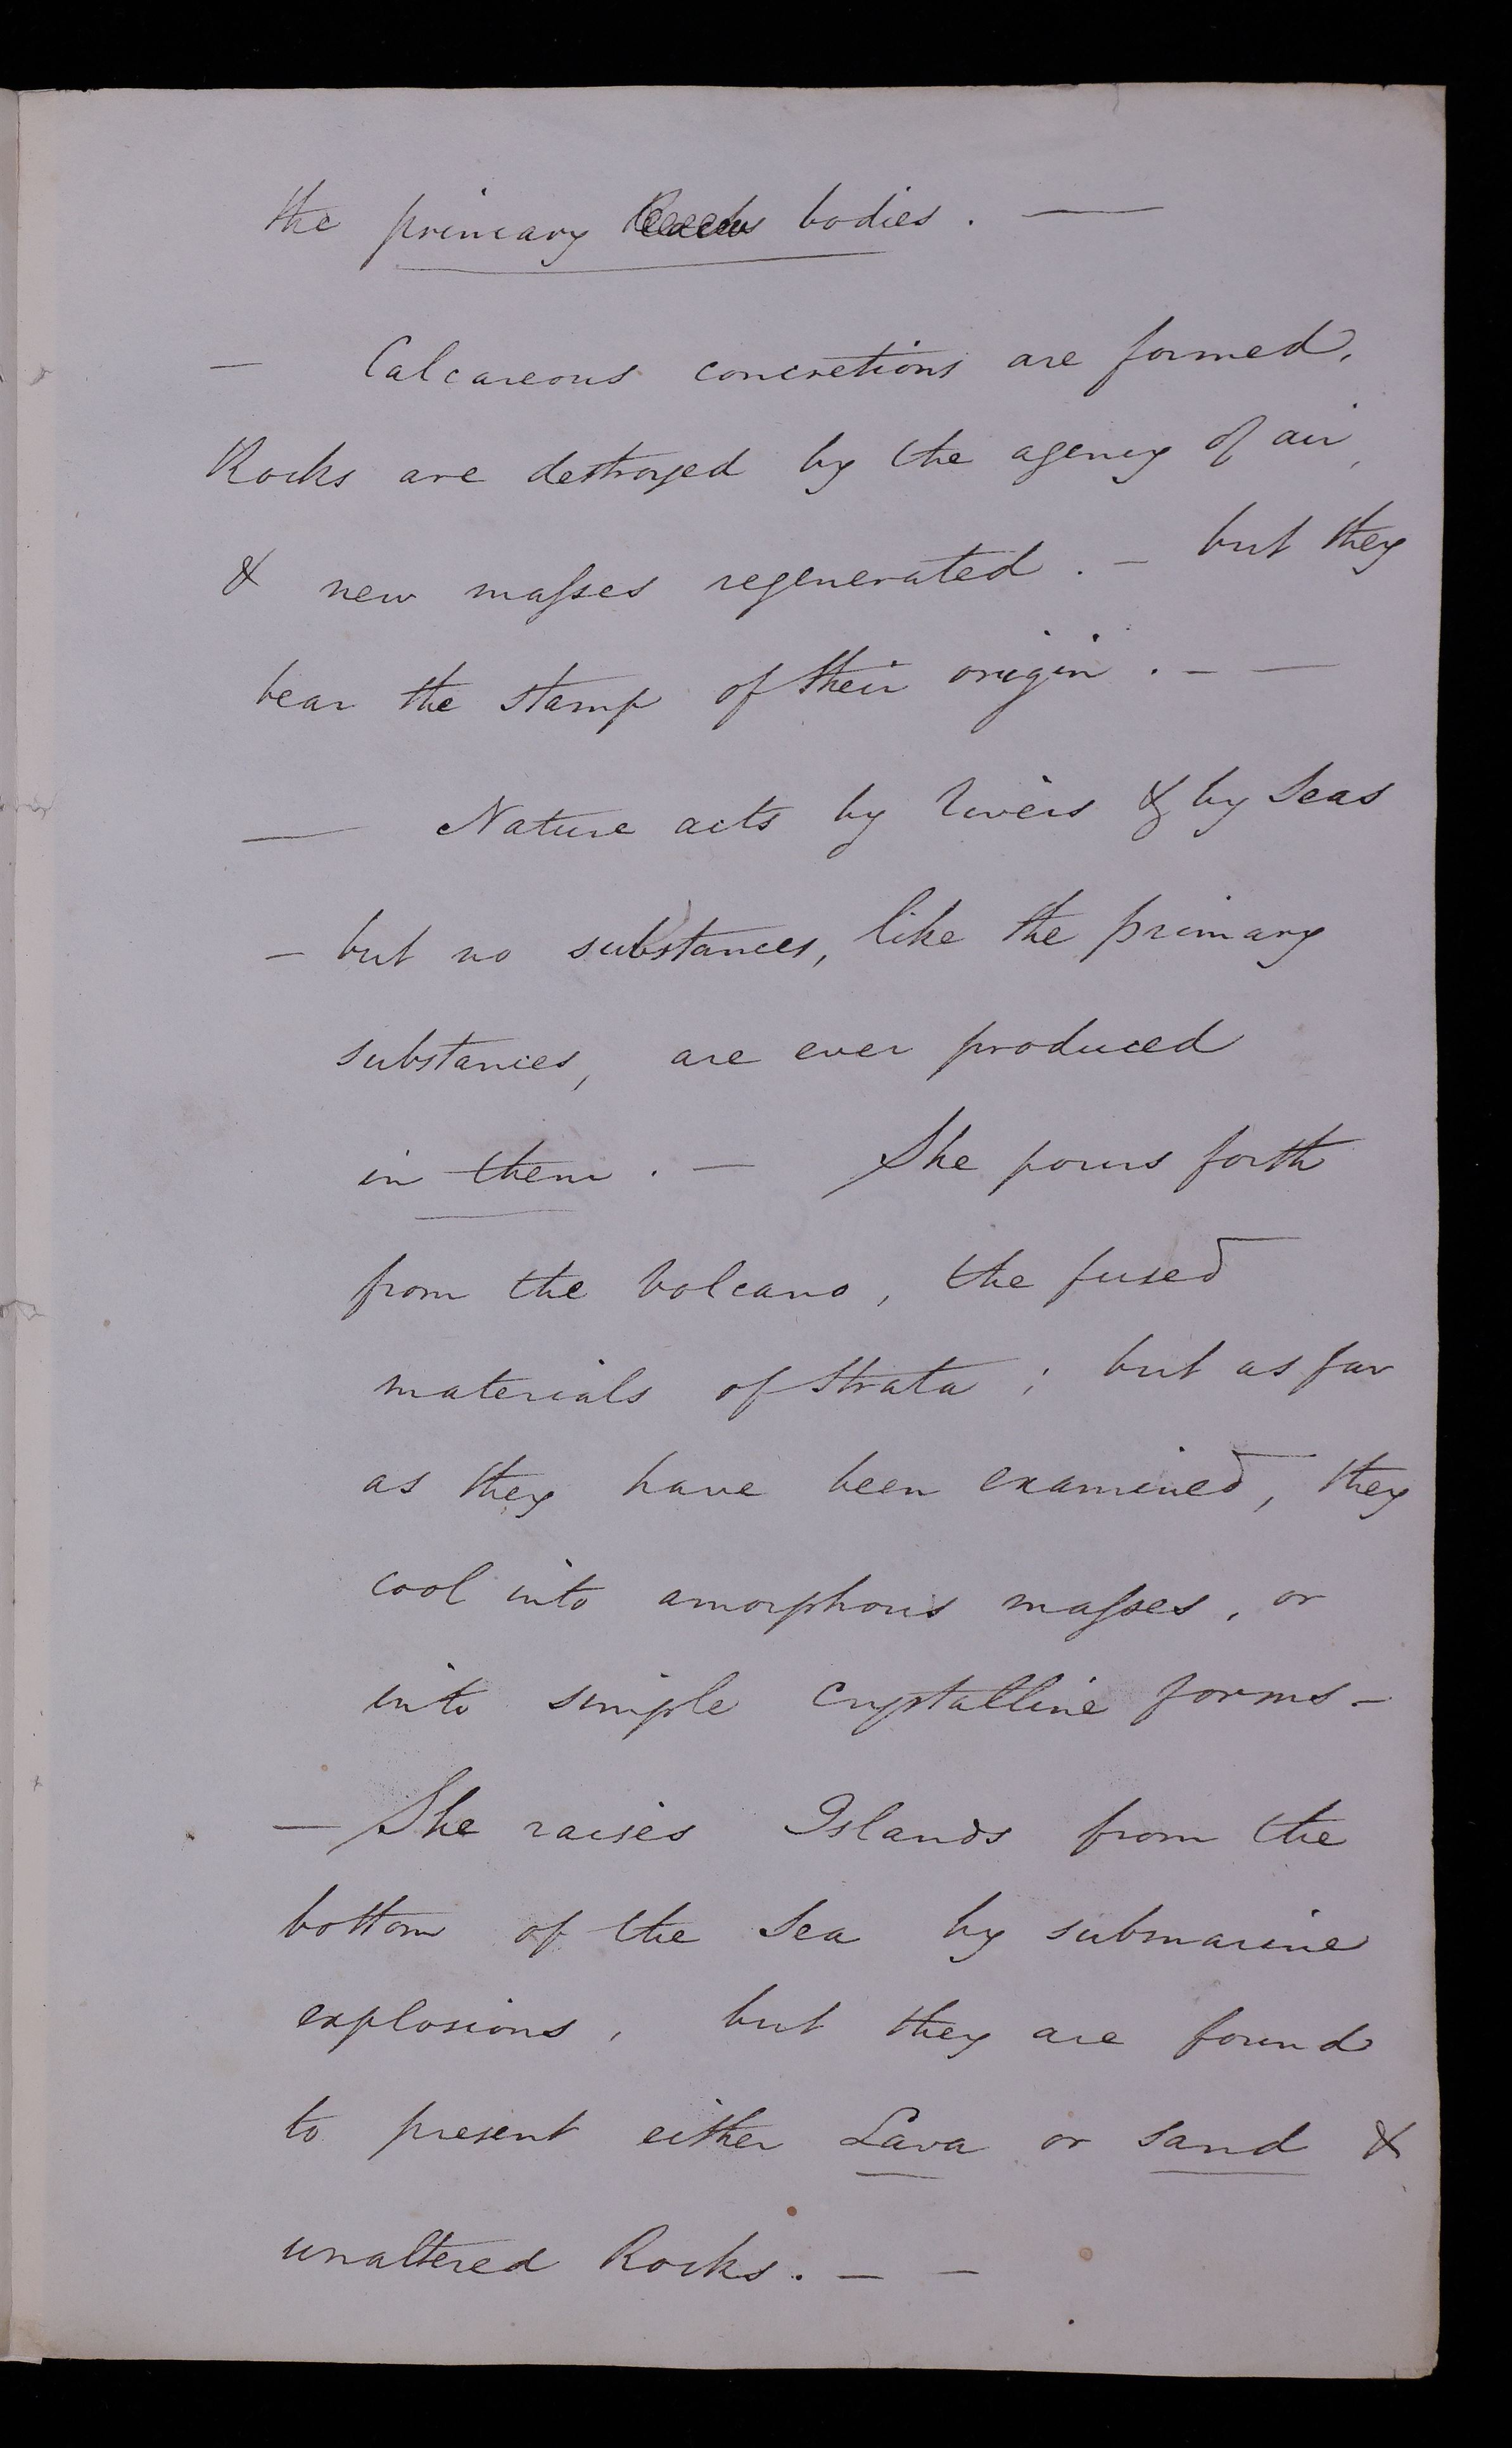 the primary bodies. —
— Calcareous concretions are formed,
Rocks are destroyed by the agency of air,
& new masses regenerated. – but they
bear the stamp of their origin. – —
— Nature acts by rivers & by Seas
– but no substances, like the primary
substances, are ever produced
in them. — She pours forth
from the volcano, the fused
materials of Strata; but as far
as they have been examined, they
cool into amorphous masses, or
into simple crystalline forms –
— She raises Islands from the
bottom of the Sea by submarine
explosions, but they are found
to present either Lava or sand &
unaltered Rocks. — –